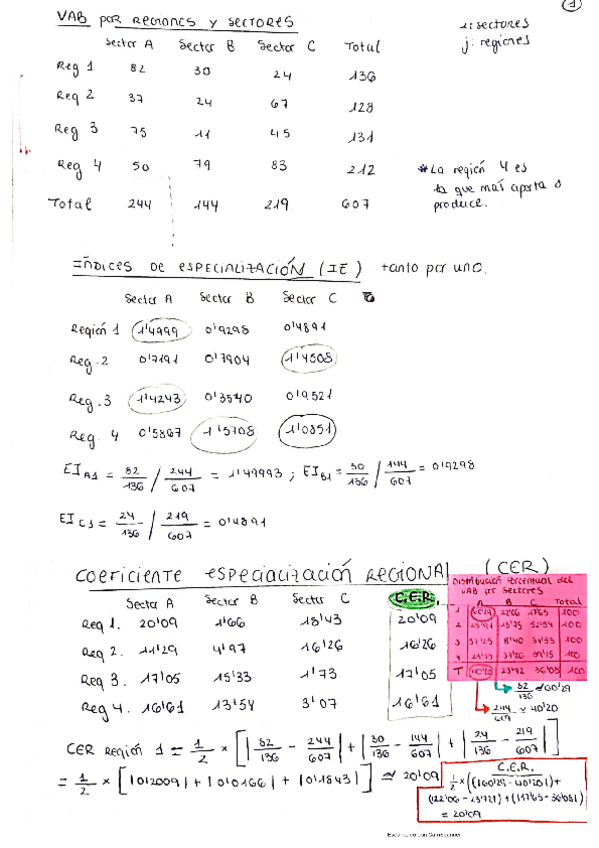 1
VAB por REGIONES y SECTORES
i: sectores
j: regiones
Sector A Sector B Sector C Total
Reg 1 82 30 24 136
Reg 2 37 24 67 128
Reg 3 75 11 45 131
Reg 4 50 79 83 212
Total 244 144 219 607
* La región 4 es
la que más aporta o
produce.
ÍNDICES DE ESPECIALIZACIÓN (IE) tanto por uno.
Sector A Sector B Sector C
Región 1 1'4999 0'9298 0'4891
Reg. 2 0'7191 0'7904 1'4508
Reg. 3 1'4243 0'3540 0'9521
Reg. 4 0'5867 1'5708 1'0851
EI A1 = 82/136 / 244/607 = 1'49993 ; EI B1 = 30/136 / 144/607 = 0'9298
EI C1 = 24/136 / 219/607 = 0'4891
COEFICIENTE ESPECIALIZACIÓN REGIONAL (CER)
Sector A Sector B Sector C C.E.R.
Reg 1. 20'09 1'66 18'43 20'09
Reg 2. 11'29 4'97 16'26 16'26
Reg 3. 17'05 15'33 1'73 17'05
Reg 4. 16'61 13'54 3'07 16'61
Distribución Porcentual del
VAB por SECTORES
A B C Total
1 60'29 22'06 17'65 100
2 18'75 52'34 100
3 57'25 8'40 34'35 100
4 37'26 39'15 100
T 40'20 23'72 36'08 100
82/136 ≃ 60'29
244/619 ≃ 40'20
CER REGIÓN 1 = 1/2 × [ |82/136 − 244/607| + |30/136 − 144/607| + |24/136 − 219/607| ]
= 1/2 × [ |0'2009| + |0'0166| + |0'1843| ] ≃ 20'09
C.E.R.
1/2 × ((160'29 − 40'20)) +
(122'06 − 23'721) + (117'65 − 36'081)
= 20'09
Escaneado con CamScanner